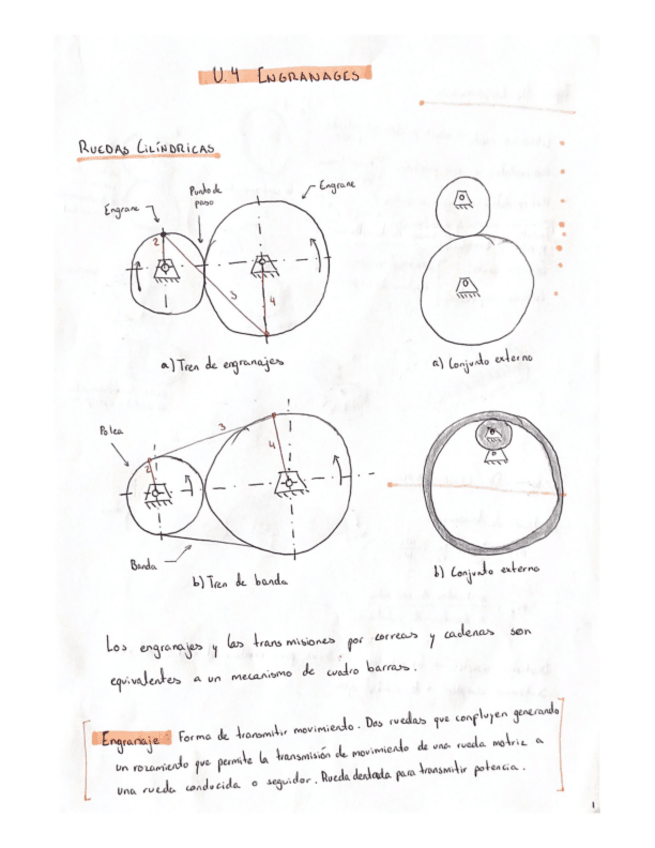 U.4 ENGRANAGES
RUEDAS CILÍNDRICAS
Engrane
Punto de
paso
Engrane
2
3
4
a) Tren de engranajes
a) Conjunto externo
Polea
3
2
4
Banda
b) Tren de banda
b) Conjunto externo
Los engranajes y las transmisiones por correas y cadenas son
equivalentes a un mecanismo de cuatro barras.
Engranaje: Forma de transmitir movimiento. Dos ruedas que confluyen generando
un rozamiento que permite la transmisión de movimiento de una rueda motriz a
una rueda conducida o seguidor. Rueda dentada para transmitir potencia.
1